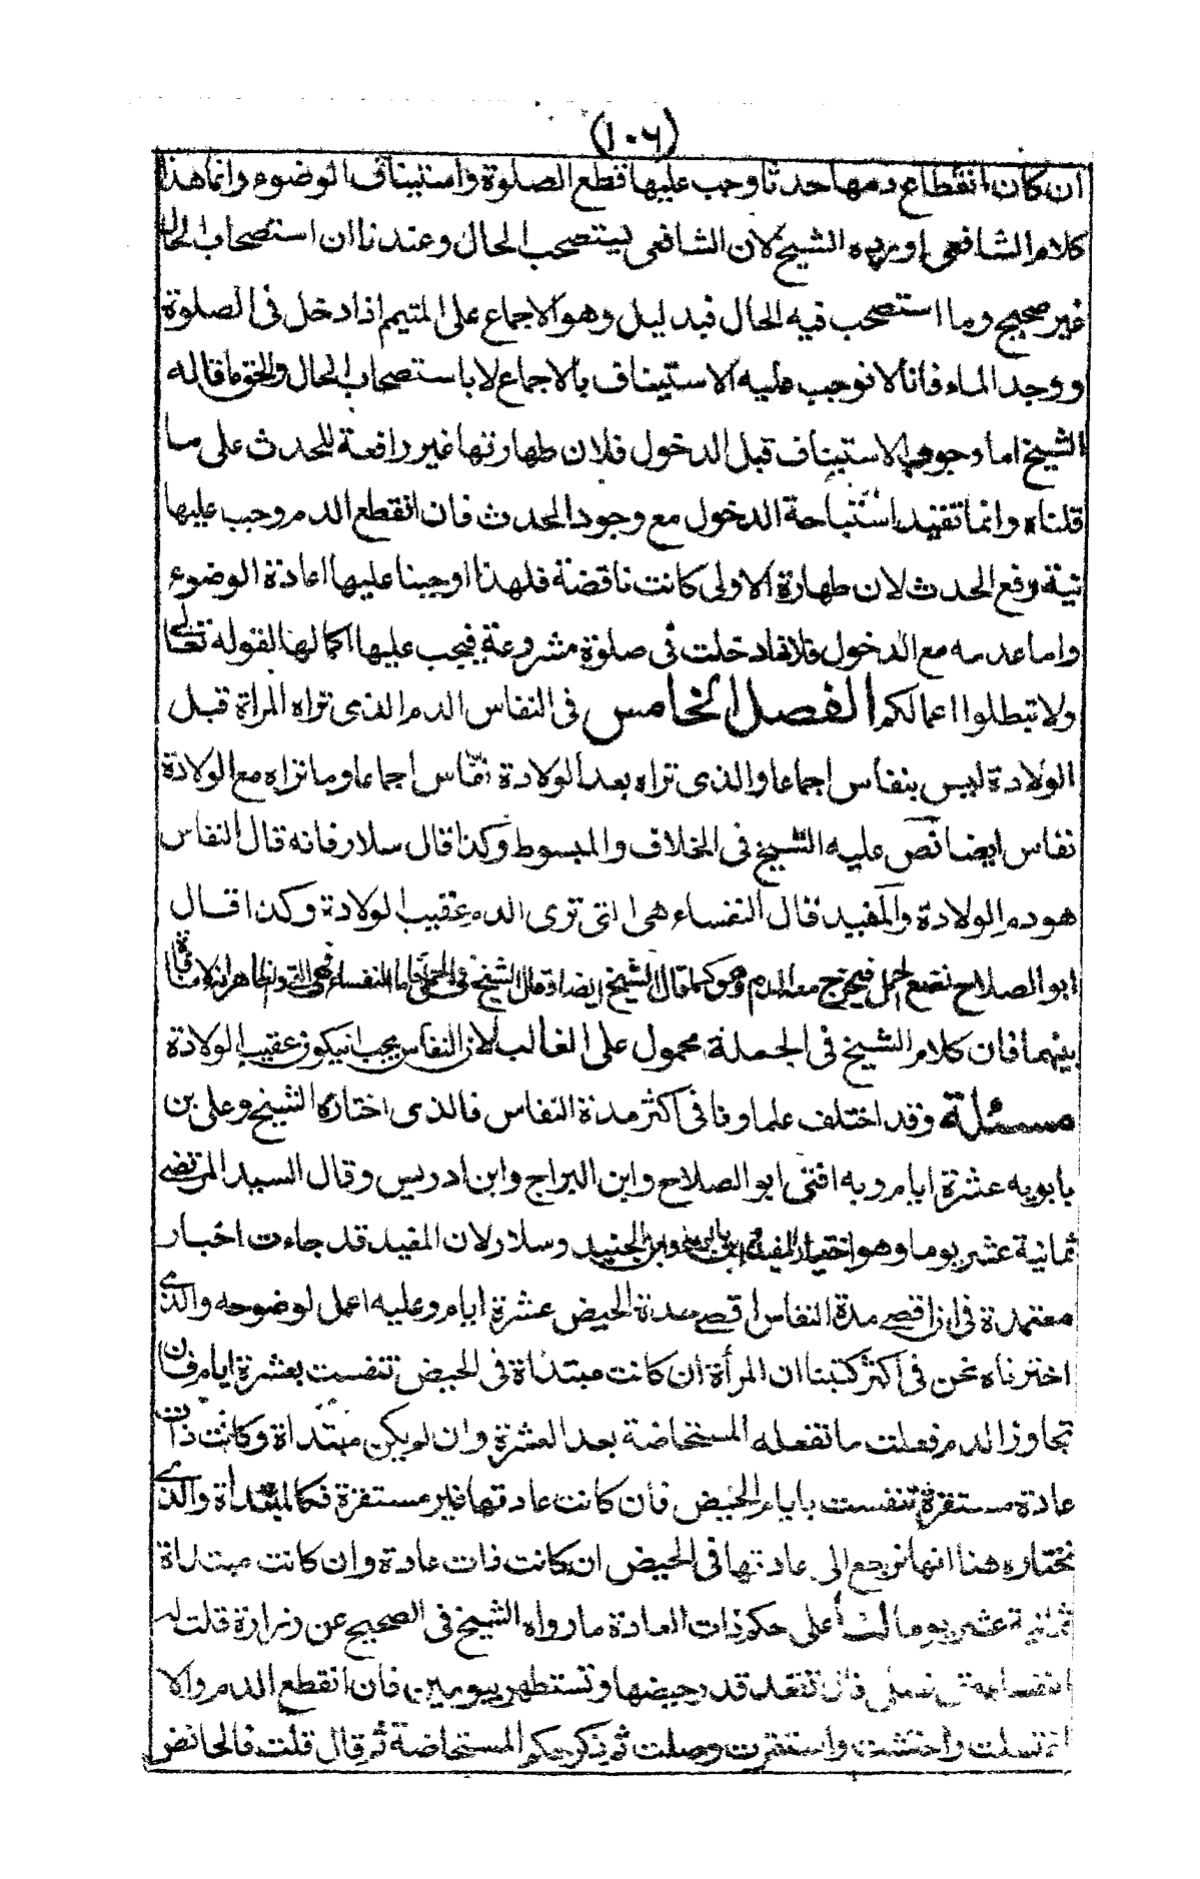 (١٠٦)
ان كان انقطاع دمها حدثا وجب عليها قطع الصلوة واستيناف الوضوء وانما هذا
كلام الشافعى اورده الشيخ لان الشافعى يستصحب الحال وعندنا ان استصحاب الحال
غير صحيح وما استصحب فيه الحال فبدليل وهو الاجماع على المتيمم اذا دخل فى الصلوة
ووجد الماء فانا لا نوجب عليه الاستيناف بالاجماع لا باستصحاب الحال والحق ما قاله
الشيخ اما وجوب الاستيناف قبل الدخول فلان طهارتها غير رافعة للحدث على ما
قلناه وانما تفيد استباحة الدخول مع وجود الحدث فان انقطع الدم وجب عليها
نية رفع الحدث لان طهارة الاولى كانت ناقصة فلهذا اوجبنا عليها اعادة الوضوء
واما عدمه مع الدخول فلانها دخلت فى صلوة مشروعة فيجب عليها اكمالها لقوله تعالى
ولا تبطلوا اعمالكم الفصل الخامس فى النفاس الدم الذى تراه المراة قبل
الولادة ليس بنفاس اجماعا والذى تراه بعد الولادة نفاس اجماعا وما تراه مع الولادة
نفاس ايضا نص عليه الشيخ فى الخلاف والمبسوط وكذا قال سلار فانه قال النفاس
هو دم الولادة والمفيد قال النفساء هى التى ترى الدم عقيب الولادة وكذا قال
ابو الصلاح تضع الحمل فيخرج معه الدم وهو كما قال الشيخ ايضا وقال الشيخ فى الجمل واما النفساء فهى التى
بينهما فان كلام الشيخ فى الجملة محمول على الغالب لان النفاس يجب ان يكون عقيب الولادة
مسئلة وقد اختلف علماونا فى اكثر مدة النفاس فالذى اختاره الشيخ وعلى بن
بابويه عشرة ايام وبه افتى ابو الصلاح وابن البراج وابن ادريس وقال السيد المرتضى
ثمانية عشر يوما وهو اختيار المفيد وابن بابويه وابن الجنيد وسلار لان المفيد قد جاءت اخبار
معتمدة فى ان اقصى مدة النفاس اقصى مدة الحيض عشرة ايام وعليه اعمل لوضوحه والذى
اخترناه نحن فى اكثر كتبنا ان المرأة ان كانت مبتداة فى الحيض تنفست بعشرة ايام فان
تجاوز الدم فعلت ما تفعله المستحاضة بعد العشرة وان لم يكن مبتداة وكانت ذات
عادة مستقرة تنفست بايام الحيض فان كانت عادتها غير مستقرة فكالمبتداة والذى
نختاره هنا انها ترجع الى عادتها فى الحيض ان كانت ذات عادة وان كانت مبتداة
ثمانية عشر يوما لنا على حكم ذات العادة ما رواه الشيخ فى الصحيح عن زرارة قلت له
النفساء متى تصلى قال تقعد قدر حيضها وتستظهر بيومين فان انقطع الدم والا
اغتسلت واحتشت واستثفرت وصلت ثم ذكر حكم المستحاضة ثم قال قلت فالحائض